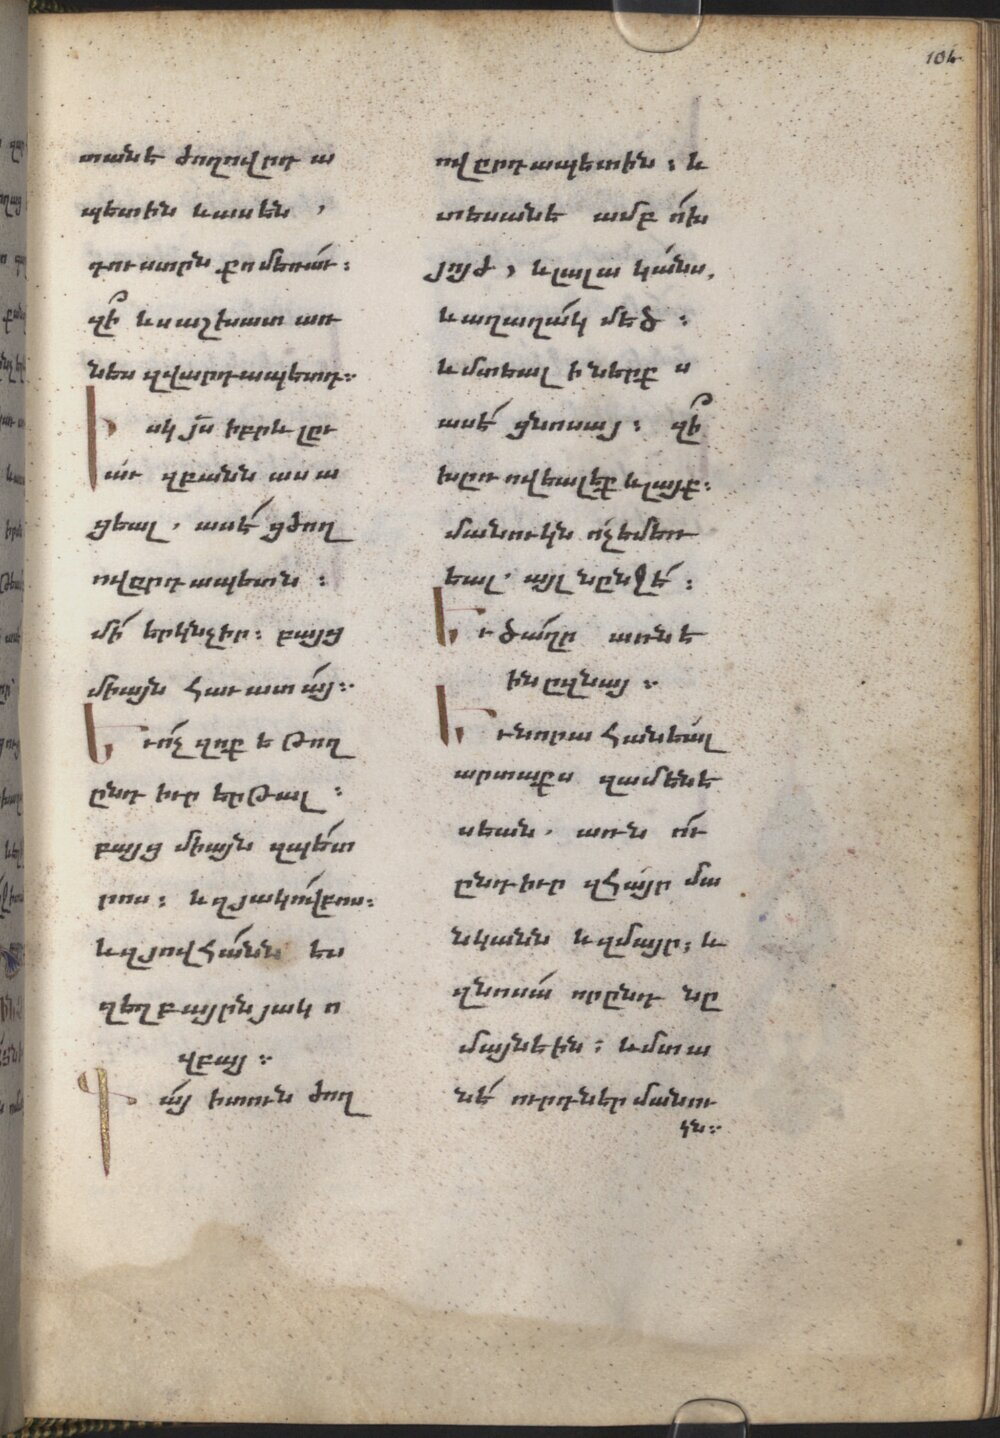 104
տանե ժողովրդա
պետին և ասեն ,
դուստրն քո մեռաւ :
զի ևս աշխատ առ
նես զվարդապետդ ։
Իսկ յս իբրև լըւ
աւ զբանն ասա
ցեալ . ասէ ցժող
ովըրդապետն :
մի երկնչիր : բայց
միայն հաւատայ ։
Եւ ոչ զոք ե թող
ընդ իւր երթալ :
բայց միայն զպետ
րոս : և զյակովբոս :
և զյովհանն ես
զեղբայրն յակո
վբայ ։
Գայ ի տուն ժող
ովըրդապետին : և
տեսանե ամբոխ
յոյժ , և լալականս ,
և աղաղակ մեծ :
և մտեալ ի ներքս
ասէ ցնոսայ : զի
խըռովեալէք և լայք :
մանուկն ոչ է մեռ
եալ . այլ ննջէ :
Եւ ծաղր առնե
ին ըզնայ ։
Եւ նորա հանեալ
արտաքս զամենե
սեան . առն ու
ընդ իւր զհայր մա
նկանն և զմայր : և
զնոսա որ ընդ նը
մայն եին : և մտա
նէ ուր դնէր մանու
կն ։